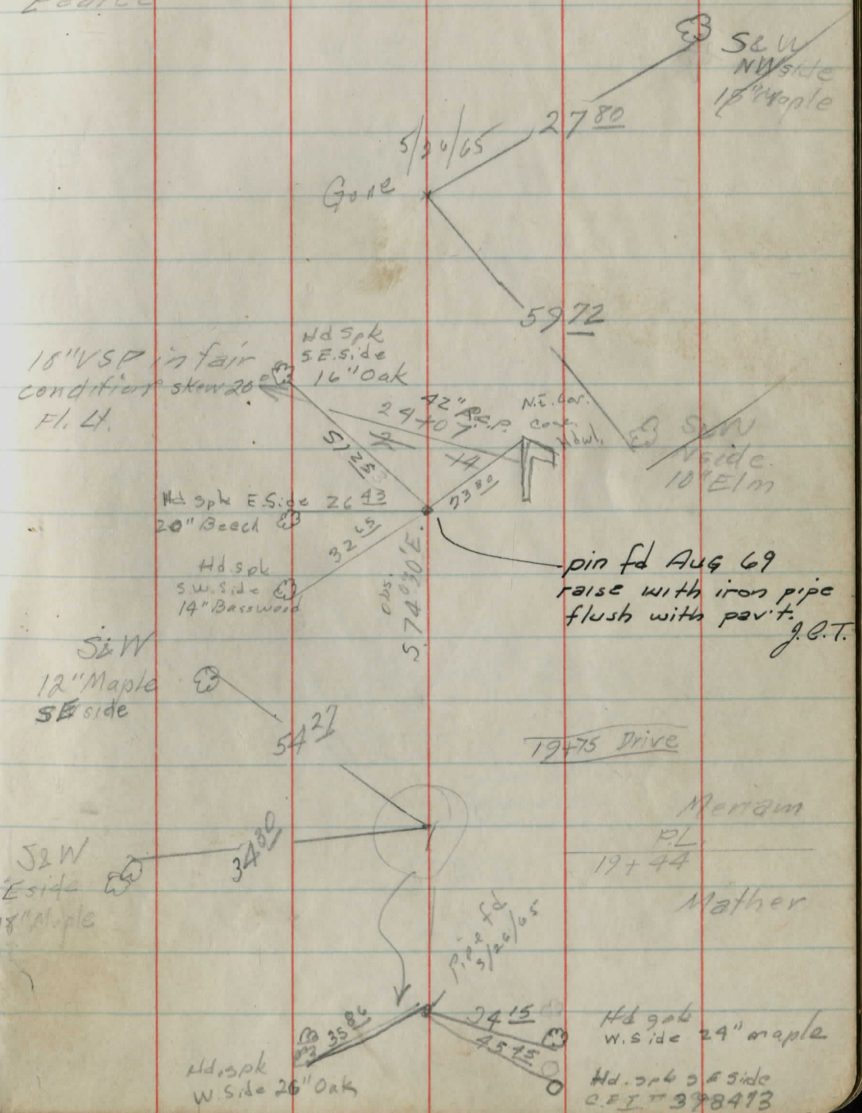 S&W
NW side
18" Maple
27 80
5/26/65
Gone
59 72
Hd Spk
S.E. side
16" Oak
18" VSP in fair
condition skew 20°
Fl. Lt.
42" R.C.P.
24+07
N.E. Cor.
Conc.
Hdwl.
S&W
N side
10" Elm
51 25
14
53 80
Hd Spk E. Side
20" Beech
26 43
32 65
Hd. spk
S.W. Side
14" Basswood
obs.
S. 74° 30' E.
pin fd Aug 69
raise with iron pipe
flush with pav't.
J.C.T.
S&W
12" Maple
SE side
54 27
19+75 Drive
Merriam
P.L.
19+44
Mather
34 80
S&W
E side
18" Maple
pipe fd
5/26/65
35 86
24 15
45 45
Hd spk
W. Side 24" maple
Hd. spk
W. Side 26" Oak
Hd. spk SE Side
C.E.I. # 398473